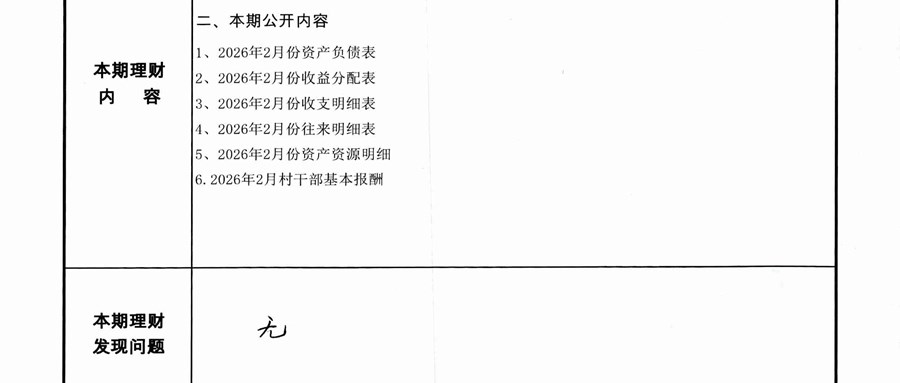 二、本期公开内容
1、2026年2月份资产负债表
2、2026年2月份收益分配表
本期理财
内 容
3、2026年2月份收支明细表
4、2026年2月份往来明细表
5、2026年2月份资产资源明细
6.2026年2月村干部基本报酬
本期理财
发现问题
无